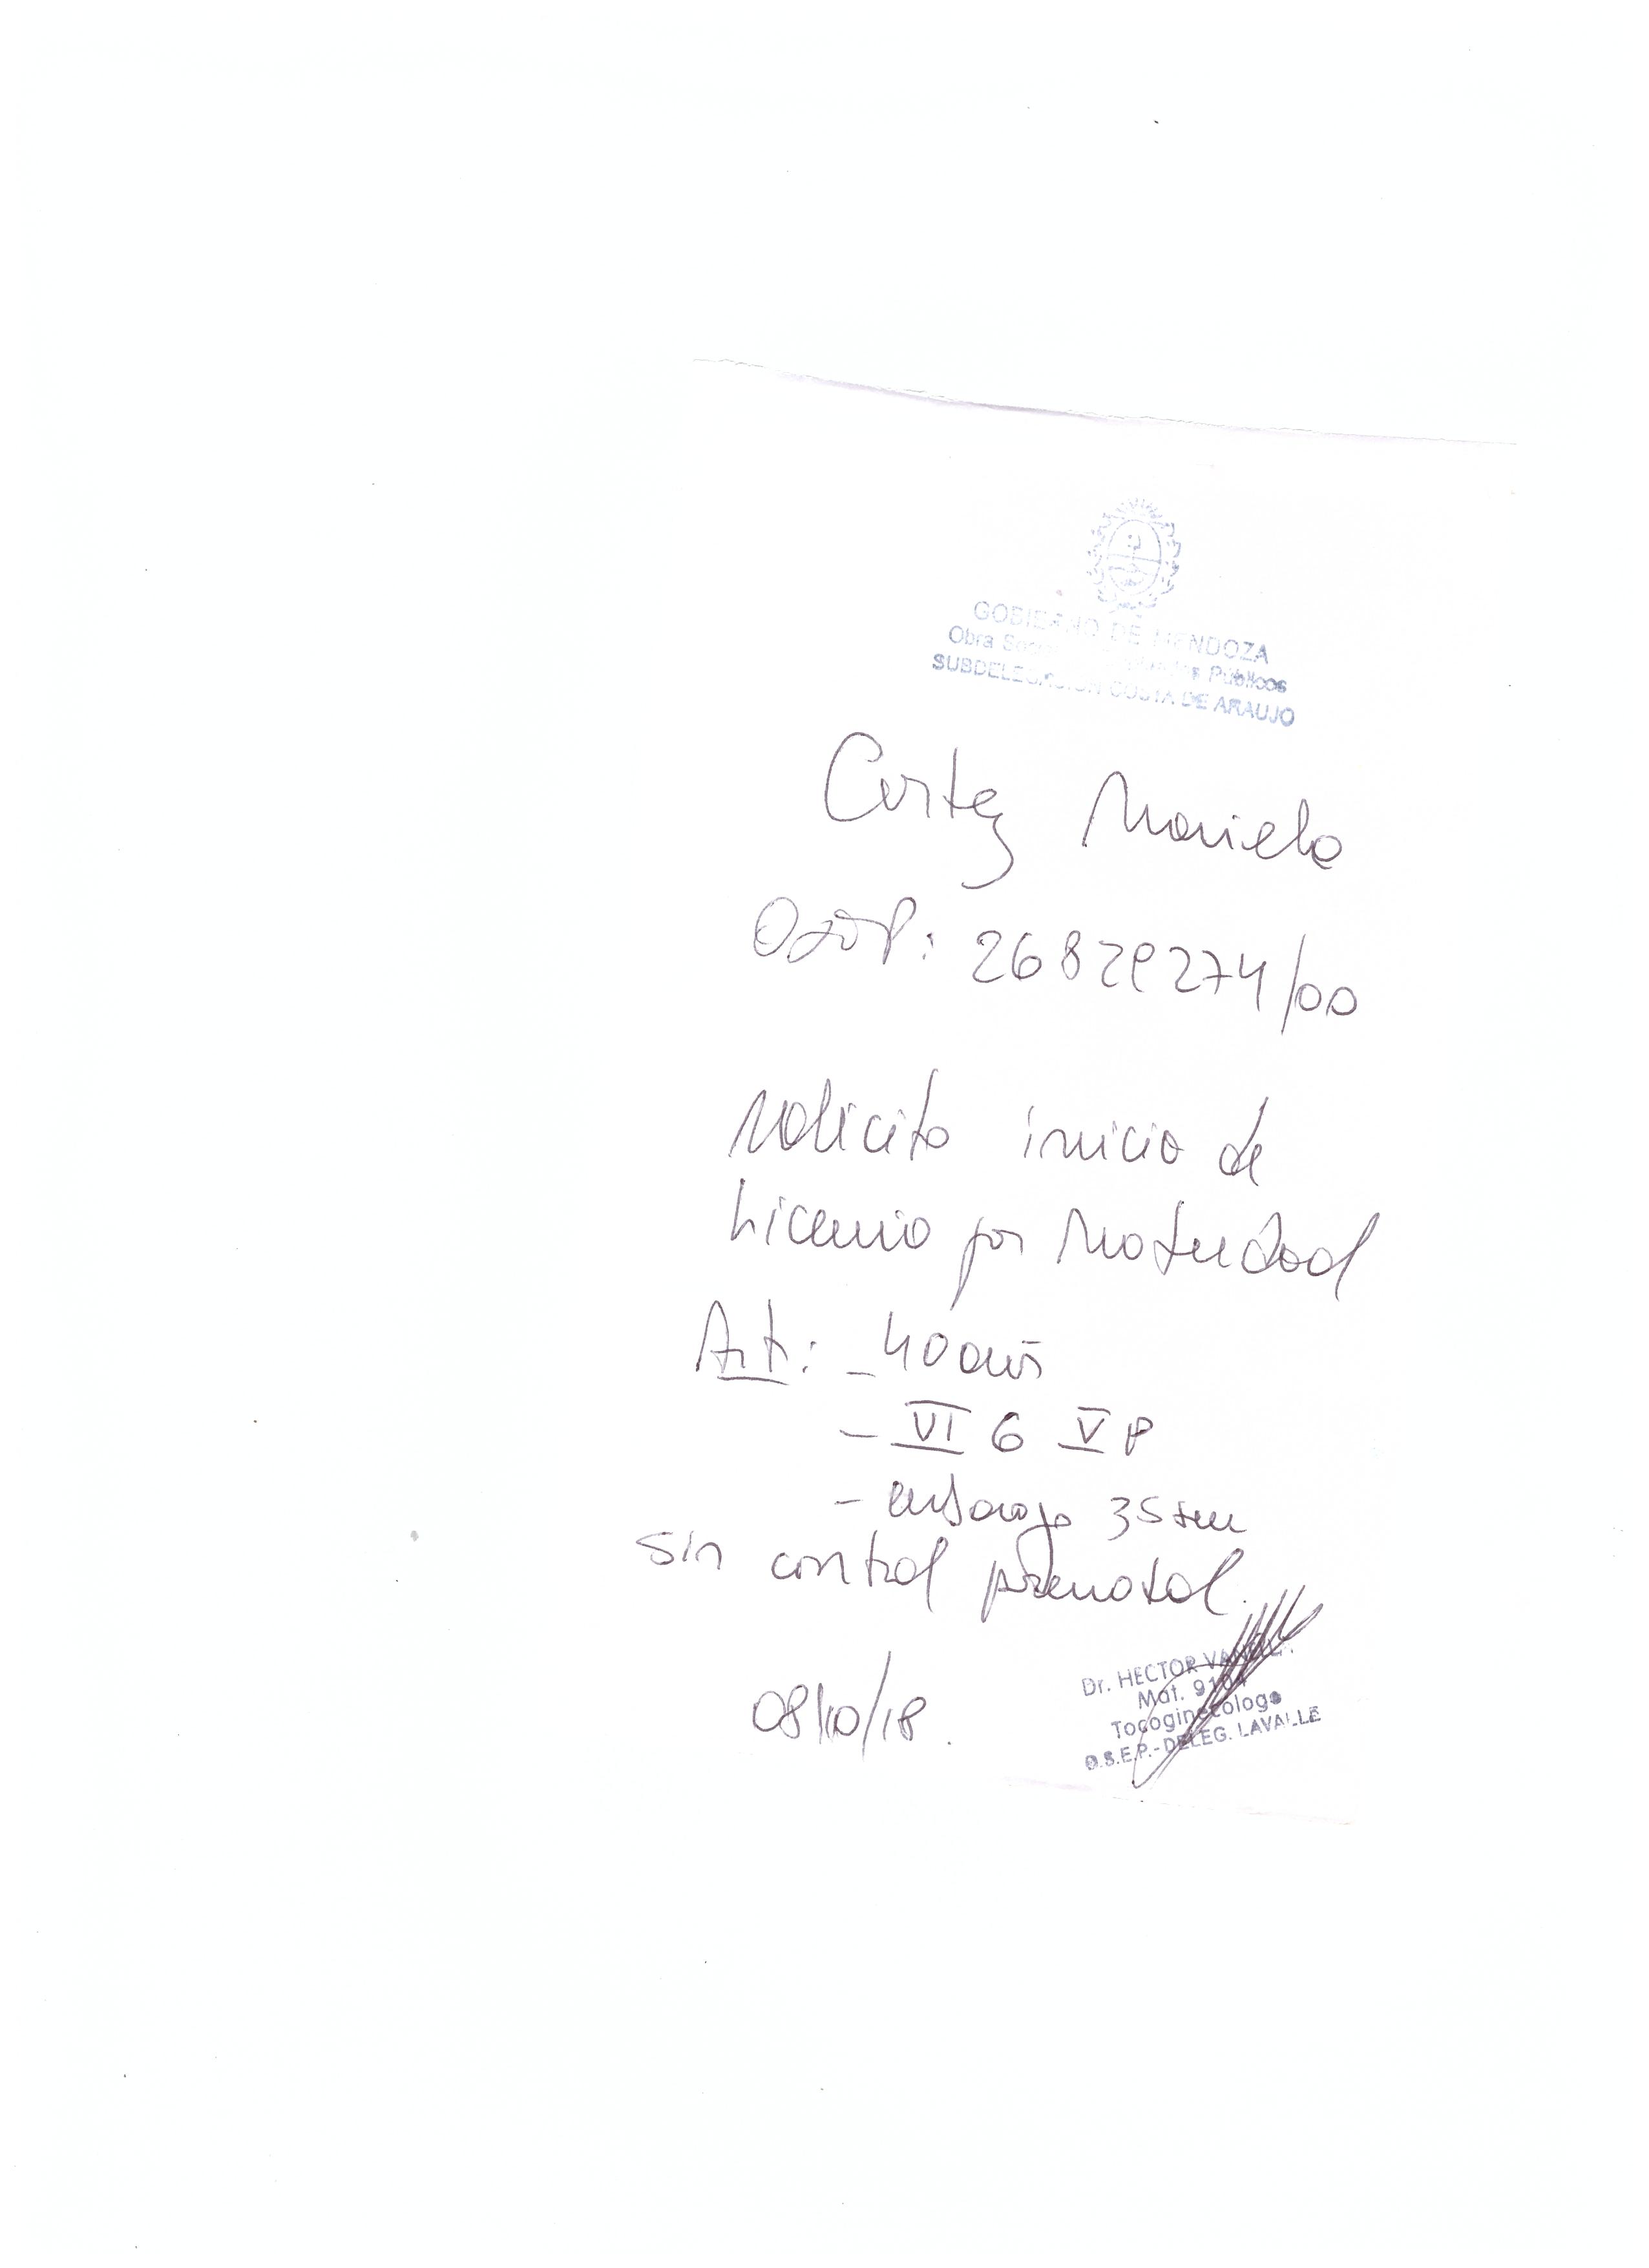 GOBIERNO DE MENDOZA
Obra Social Empleados Públicos
SUBDELEGACION COSTA DE ARAUJO
Cortez Mariela
OSEP: 26829274/00
Solicito inicio de
Licencia por Maternidad
Ant: - 40 años
- VI G V P
- embarazo 35 sem
sin control prenatal.
08/10/18.
Dr. HECTOR
Mat. 9104
Tocoginecologo
O.S.E.P.- DELEG. LAVALLE